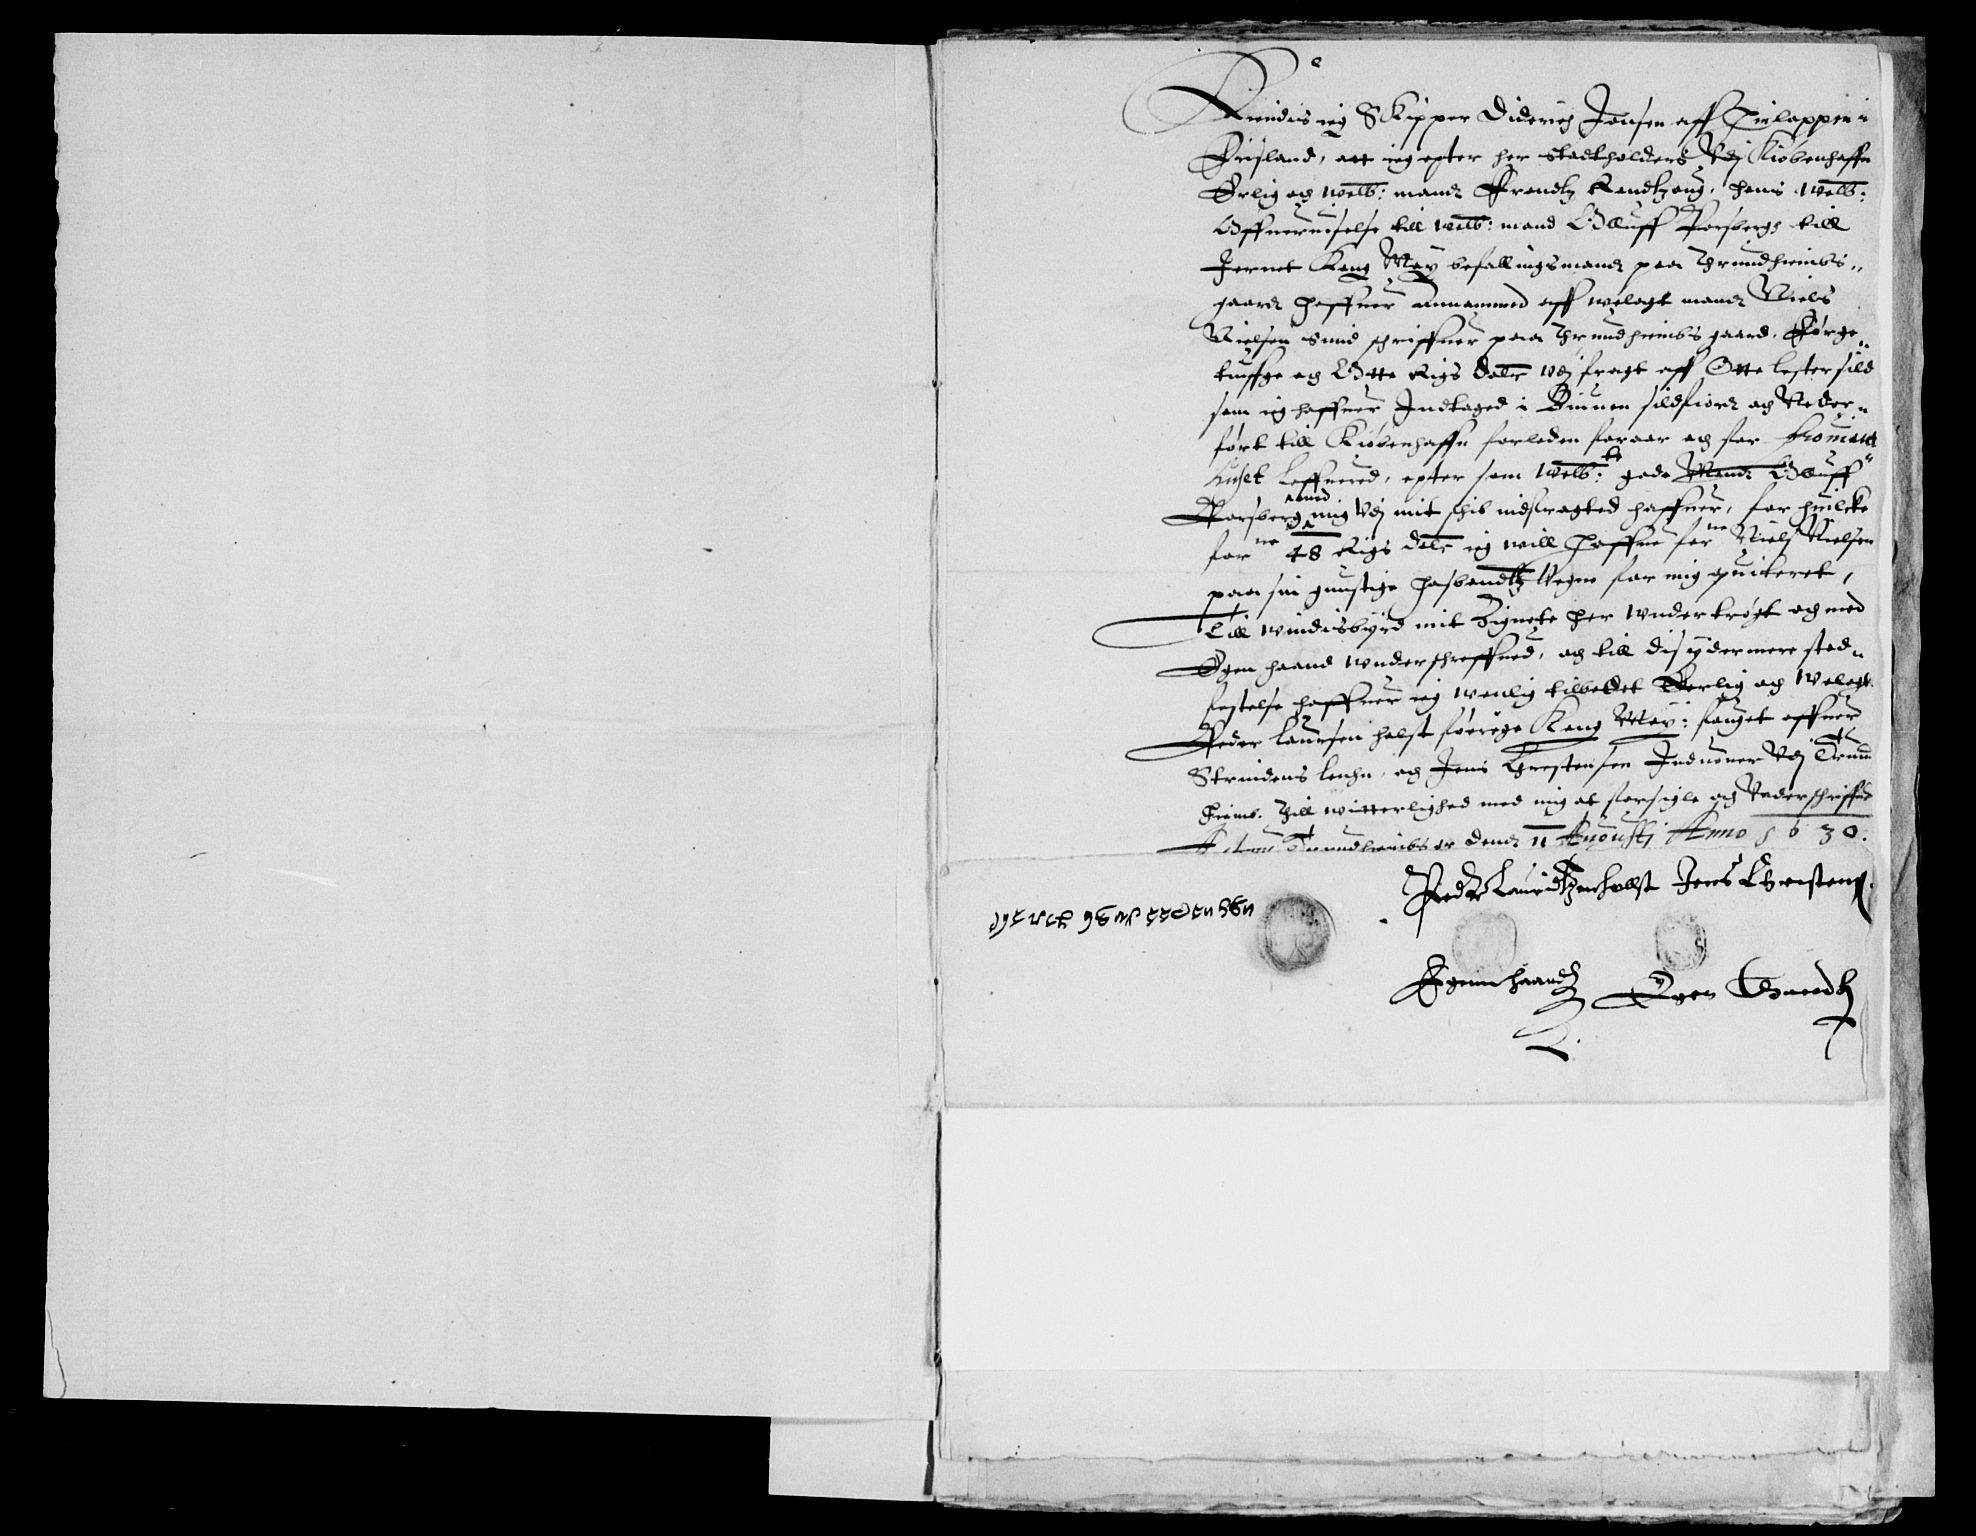 Kiendis ieg Skipper Diderich Jensen aff Hinlappen i
Frisland, att ieg epter her Stadtholders Vdj Kiøbenhaffn
Erlig och welb: mand Frandtz Randtzoug, hans welb:
Offueruiselse till welb: mand Olluff Parsbergh till
Jernet Kong May befallingsmand paa Thrundhiembs
gaard haffuer annammed aff welagt mand Niels
Nielsen Smid schriffuer paa Thrundhiembs gaard, Førge
tiuffge och Otte Rigs daler vdj fragt aff Otte lester sild
som ieg haffuer Indtaged i sildfiord och Neder
ført till Kiøbenhaffn forleden foraar och for Prouiant
huset leffuered, epter som welb:te gode Mand Olluff
Parsberg med mig Vdj mit schib indfragted haffuer, for huilcke
forne 48 Rigs daler ieg will haffue forne Niels Nielsen
paa sin gunstige hosbondtz Vegne for mig quiteret,
Till windisbyrd mit Zignete her wnder trøgt och med
Egen haand wnderschreffued, och till dis ydermere stad
festelse haffuer ieg wenlig tilbedet Erlig och Welagt
Peder Laursen holst Kong May: fouget offuer
Strindens lenhn, och Jens Chrestensen Induoner Vdj Trund
hiemb. Till witterlighed med mig at forsigle och Vnderschriffue
Actum Trundhiembs den 11 Augustj Anno 1630.
Peder Lauridtzen hollst Jens Christens
Egenn haandt Egen Haandt